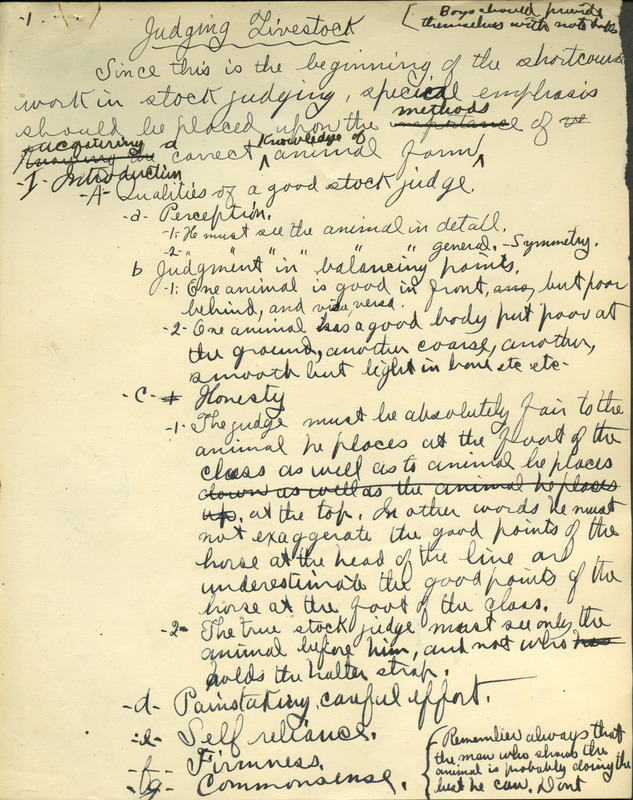 -1
[ Boys should provide
themselves with note books
Judging Livestock
Since this is the beginning of the shortcourse
work in stock judging, special emphasis
should be placed upon the importance methods of
acquiring a correct knowledge of animal form
-I- Introduction
-A- Qualities of a good stock judge.
-a- Perception.
-1- He must see the animal in detail.
-2- " " " " " " general. - Symmetry.
b Judgment in balancing points.
-1- One animal is good in front, and, but poor
behind, and vice, versa.
-2- One animal has a good body but poor at
the ground, another coarse, another,
smooth but light in bone etc etc-
-C- Honesty
-1- The judge must be absolutely fair to the
animal he places at the foot of the
class as well as to animal he places
down as well as the animal he places
up. at the top. In other words he must
not exaggerate the good points of the
horse at the head of the line and
underestimate the good points of the
horse at the foot of the class.
-2- The true stock judge must see only the
animal before him, and not who has
holds the halter strap.
-d- Painstaking, careful effort.
-e- Self reliance.
-f- Firmness.
-g- Commonsense.
{ Remember always that
the man who shows the
animal is probably doing the
best he can. Dont